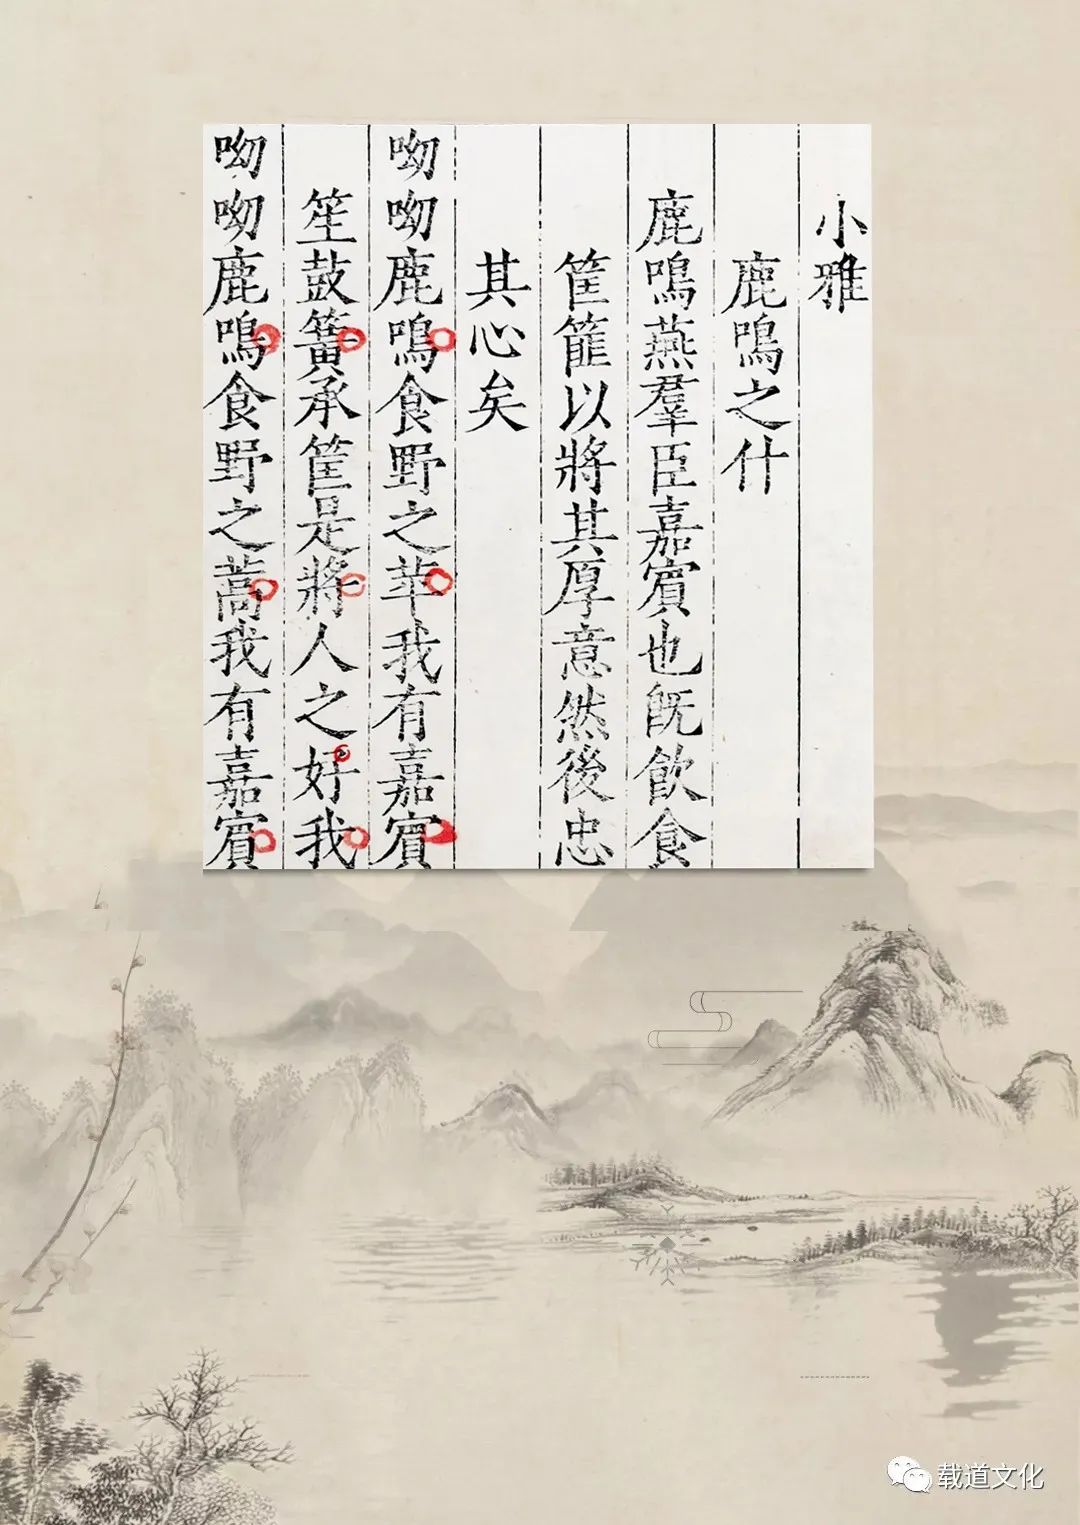 小雅
鹿鳴之什
鹿鳴燕羣臣嘉賓也既飲食
筐篚以將其厚意然後忠
其心矣
呦呦鹿鳴食野之苹我有嘉賓
笙鼓簧承筐是將人之好我
呦呦鹿鳴食野之蒿我有嘉賓
载道文化